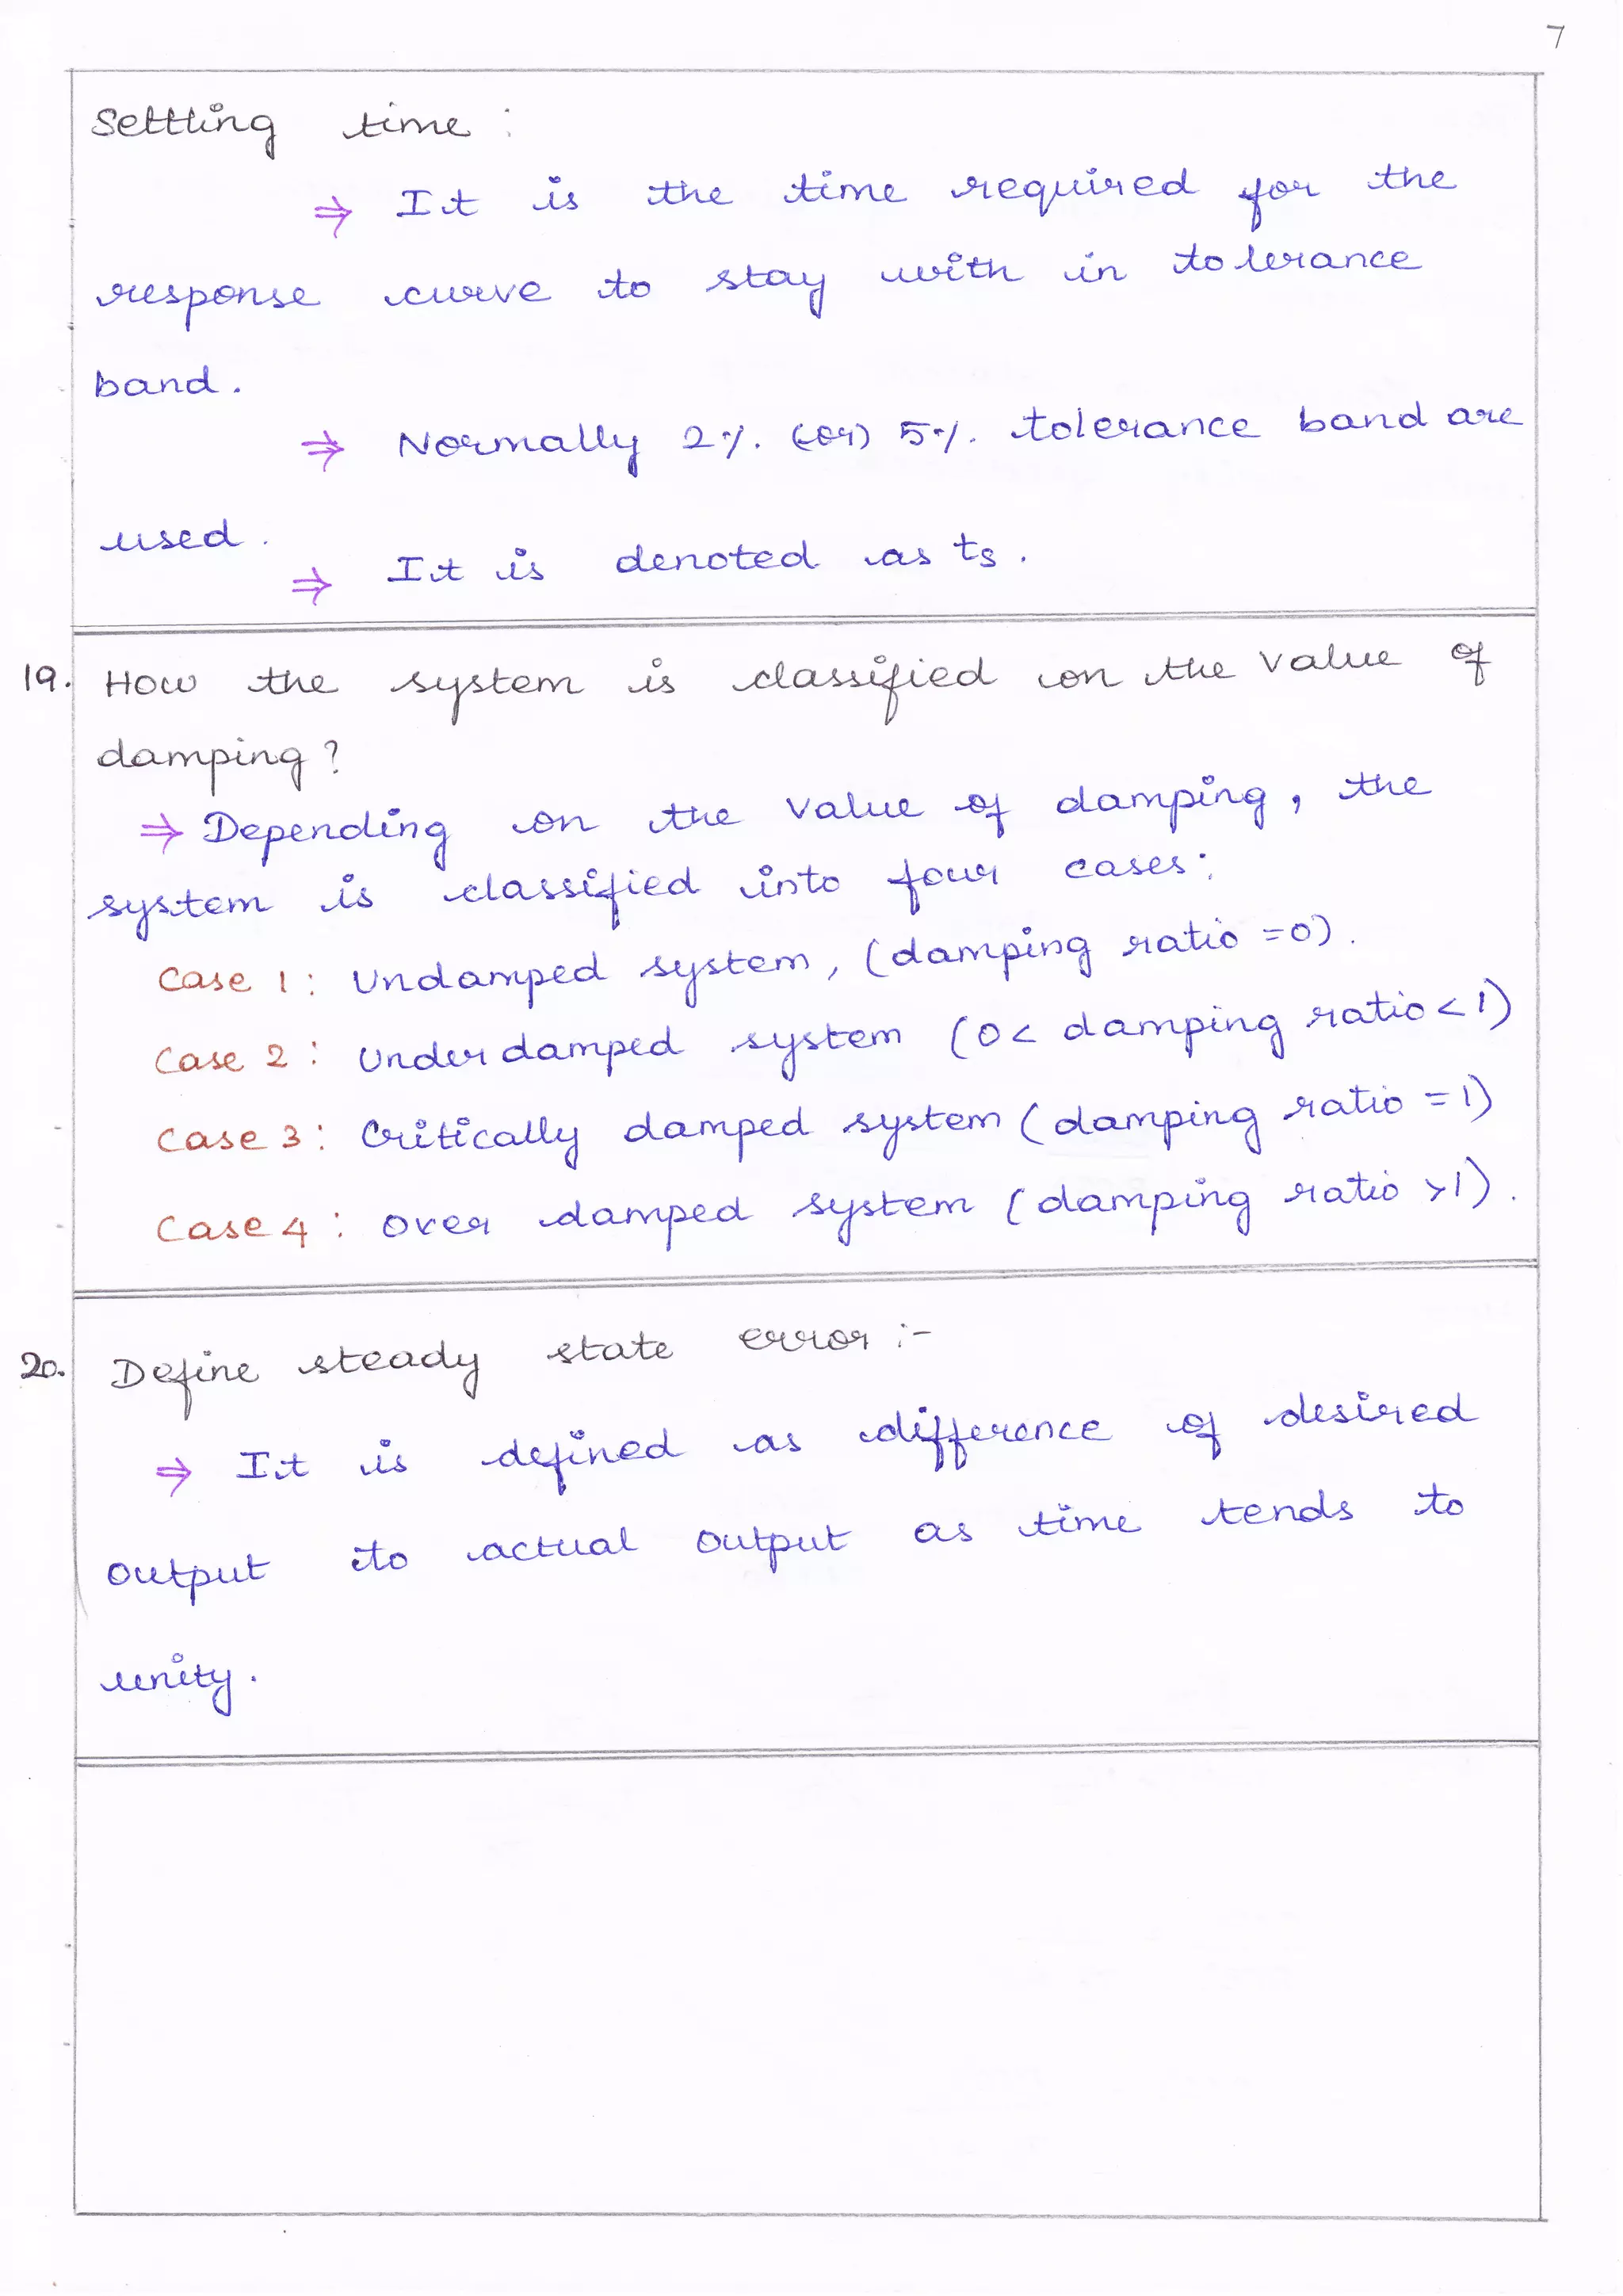 7
Settling time :
⇒ It is the time required for the
response curve to stay with in tolerance
band.
⇒ Normally 2%. (or) 5%. tolerance band are
used.
⇒ It is denoted as ts.
19. How the system is classified on the value of
damping?
⇒ Depending on the value of damping, the
system is classified into four cases:
Case 1 : Undamped system, (damping ratio =0).
Case 2 : Under damped system (0< damping ratio < 1)
Case 3 : Critically damped system (damping ratio = 1)
Case 4 : Over damped system (damping ratio >1).
20. Define steady state error :-
⇒ It is defined as difference of desired
output to actual output as time tends to
unity.